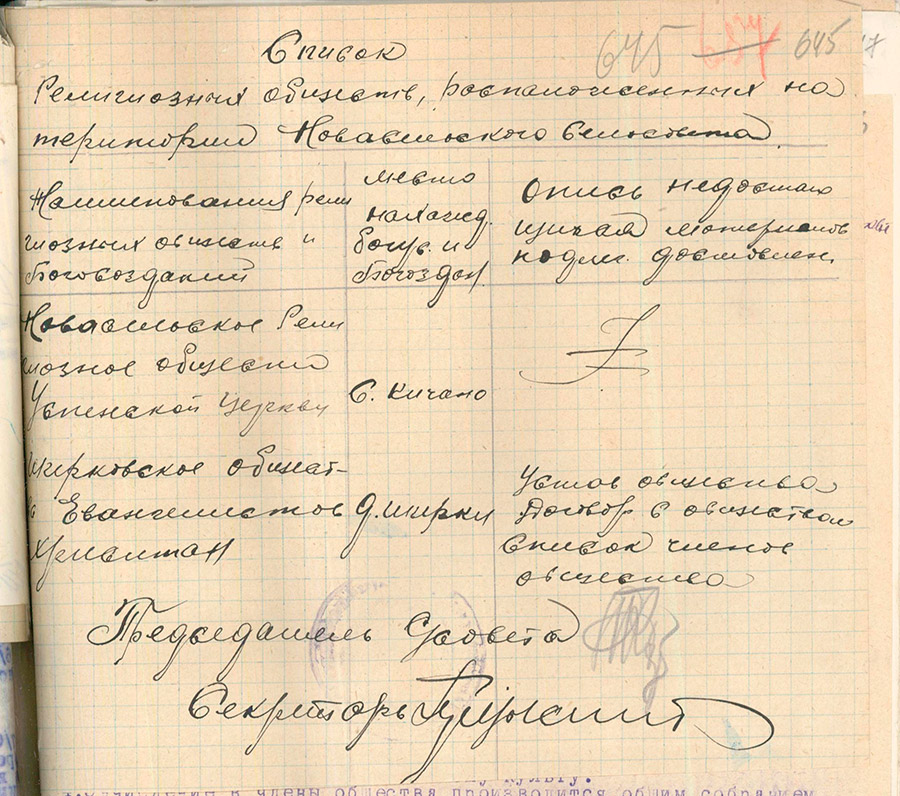 645 637 645
Список
Религиозных обществ, роспаложенных на
територии Новасельского сельсовета.
Наиминования рели
гиозных обществ и
Боговозданий
место
нахажд.
богус. и
Богоздан.
опись недостаю
щихая материалов
подлг. доставлен.
Новасельское Рели
гиозное общество
Успенской Церкви
С. Кичано
Ширковское общест-
во Евангелистов
Христиан
д. Ширки
Устав общества
Договор с обществом
Список членов
общества
Председатель Сясовета
Секретарь
му культу.
в члены общества производится общим собранием